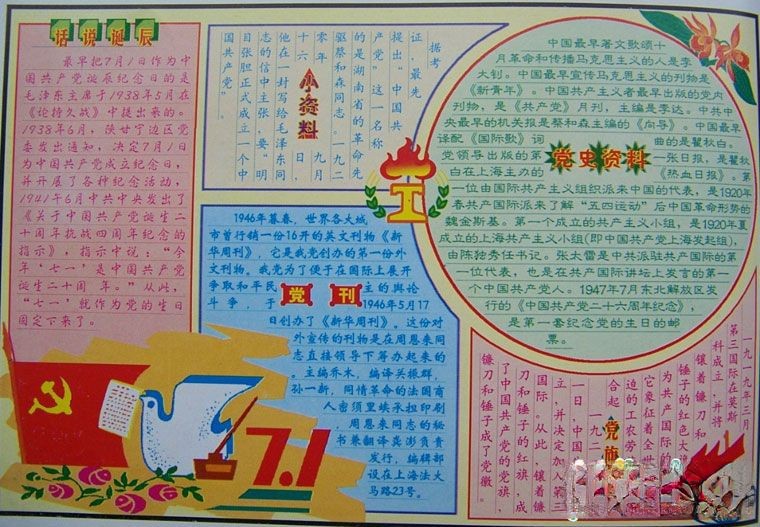 话说诞辰
最早把7月1日作为中
国共产党诞辰纪念日的是
毛泽东主席于1938年5月在
《论持久战》中提出来的。
1938年6月，陕甘宁边区党
委发出通知，决定7月1日
为中国共产党成立纪念日，
并开展了各种纪念活动，
1941年6月中共中央发出了
《关于中国共产党诞生二
十周年抗战四周年纪念的
指示》，指示中说：“今
年‘七一’是中国共产党
诞生二十周年。”从此，
“七一”就作为党的生日
固定下来了。
小资料
据考
证，最先
提出“中国共
产党”这一名称
的是湖南省的革命先
驱蔡和森同志。一九二
零年九月
十六日，
他在一封给毛泽东同
志的信中主张，要“明
目张胆正式成立一个中
国共产党”。
党史资料
中国最早著文歌颂十
月革命和传播马克思主义的人是李
大钊。中国最早宣传马克思主义的刊物是
《新青年》。中国共产主义者最早出版的党内
刊物，是《共产党》月刊，主编是李达。中共中
央最早的机关报是蔡和森主编的《向导》。中国最早
译配《国际歌》词曲的是瞿秋白。
党领导出版的第一张日报，是瞿秋
白在上海主办的《热血日报》。第
一位由国际共产主义组织派来中国的代表，是1920年
春共产国际派来了解“五四运动”后中国革命形势的
魏金斯基。第一个成立的共产主义小组，是1920年夏
成立的上海共产主义小组(即中国共产党上海发起组)，
由陈独秀任书记。张太雷是中共派驻共产国际的第
一位代表，也是在共产国际讲坛上发言的第一
个中国共产党人。1947年7月东北解放区发
行的《中国共产党二十六周年纪念》，
是第一套纪念党的生日的邮
票。
党刊
1946年暮春，世界各大城
市首行销一份16开的英文刊物《新
华周刊》，它是我党创办的第一份外
文刊物。我党为了便于在国际上展开
争取和平民主的舆论
斗争，于1946年5月17
日创办了《新华周刊》。这份对
外宣传的刊物是在周恩来同
志直接领导下筹办起来的
。主编乔木，编译关振群，
孙一新，同情革命的法国商
人密须里埃承担印刷
，周恩来同志的秘
书兼翻译龚澎负责
发行，编辑部
设在上海法大
马路23号。
7.1
党旗
一九一九年三月，
第三国际在莫斯
科成立，并将
镰着镰刀和
锤子的红色大旗
为共产国际的
它象征着全世
边的工农劳
合起
一九二
一日，中国
立，并决定加入第三
国际。从此，镶着镰
刀和锤子的红旗，成
了中国共产党的党旗，
镰刀和锤子成了党徽。